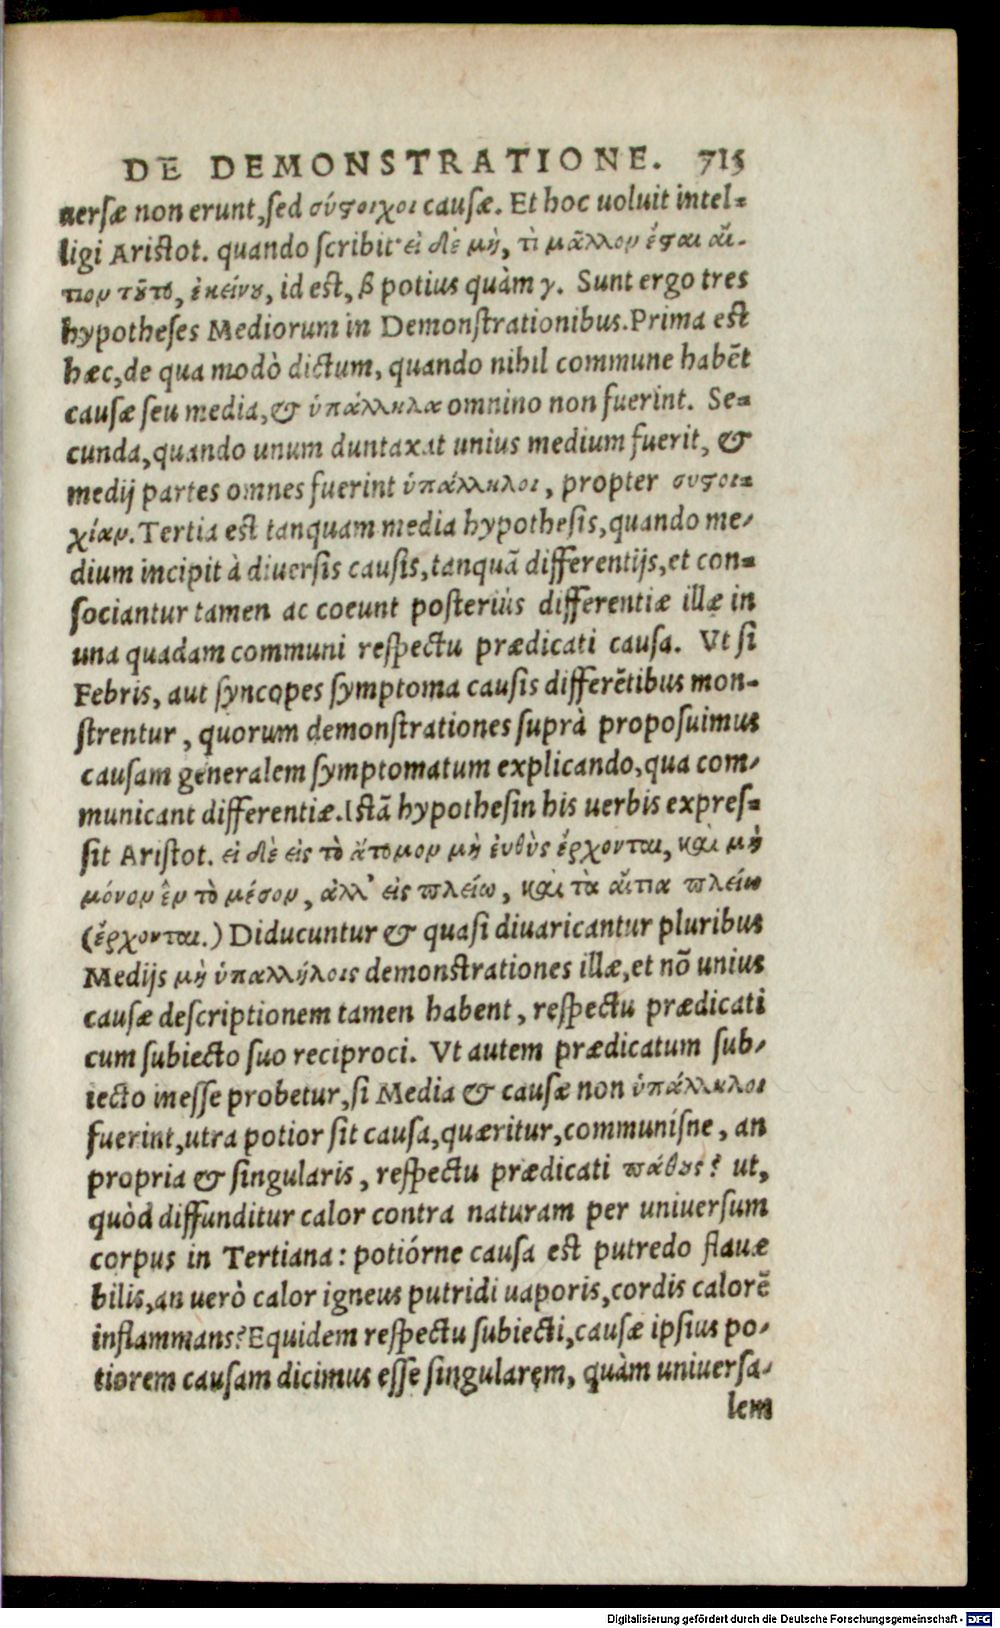 DE DEMONSTRATIONE. 715
uersæ non erunt, sed σύςοιχοι causæ. Et hoc uoluit intel-
ligi Aristot. quando scribit· εἰ δὲ μὴ, τὶ μᾶλλον ἔςαι αἴ-
τιον τȣ̃το, ἐκείνȣ, id est, β potius quàm γ. Sunt ergo tres
hypotheses Mediorum in Demonstrationibus. Prima est
hæc, de qua modò dictum, quando nihil commune habẽt
causæ seu media, & ὑπάλληλα omnino non fuerint. Se-
cunda, quando unum duntaxat unius medium fuerit, &
medij partes omnes fuerint ὑπάλληλοι, propter συςοι-
χίαν. Tertia est tanquam media hypothesis, quando me-
dium incipit à diuersis causis, tanquã differentijs, et con-
sociantur tamen ac coeunt posteriùs differentiæ illæ in
una quadam communi respectu prædicati causa. Vt si
Febris, aut syncopes symptoma causis differẽtibus mon-
strentur, quorum demonstrationes suprà proposuimus
causam generalem symptomatum explicando, qua com-
municant differentiæ. Istã hypothesin his uerbis expres-
sit Aristot. εἰ δὲ εἰς τὸ ἄτομον μὴ ἐυθὺς ἔρχονται, καὶ μὴ
μόνον ἓν τὸ μέσον, ἀλλ’ εἰς πλείω, καὶ τὰ αἴτια πλείω
(ἔρχονται.) Diducuntur & quasi diuaricantur pluribus
Medijs μὴ ὑπαλλήλοις demonstrationes illæ, et nõ unius
causæ descriptionem tamen habent, respectu prædicati
cum subiecto suo reciproci. Vt autem prædicatum sub-
iecto inesse probetur, si Media & causæ non ὑπάλληλοι
fuerint, utra potior sit causa, quæritur, communisne, an
propria & singularis, respectu prædicati πάθȣς? ut,
quòd diffunditur calor contra naturam per uniuersum
corpus in Tertiana: potiórne causa est putredo flauæ
bilis, an uerò calor igneus putridi uaporis, cordis calorẽ
inflammans? Equidem respectu subiecti, causæ ipsius po-
tiorem causam dicimus esse singularem, quàm uniuersa-
lem
Digitalisierung gefördert durch die Deutsche Forschungsgemeinschaft - DFG